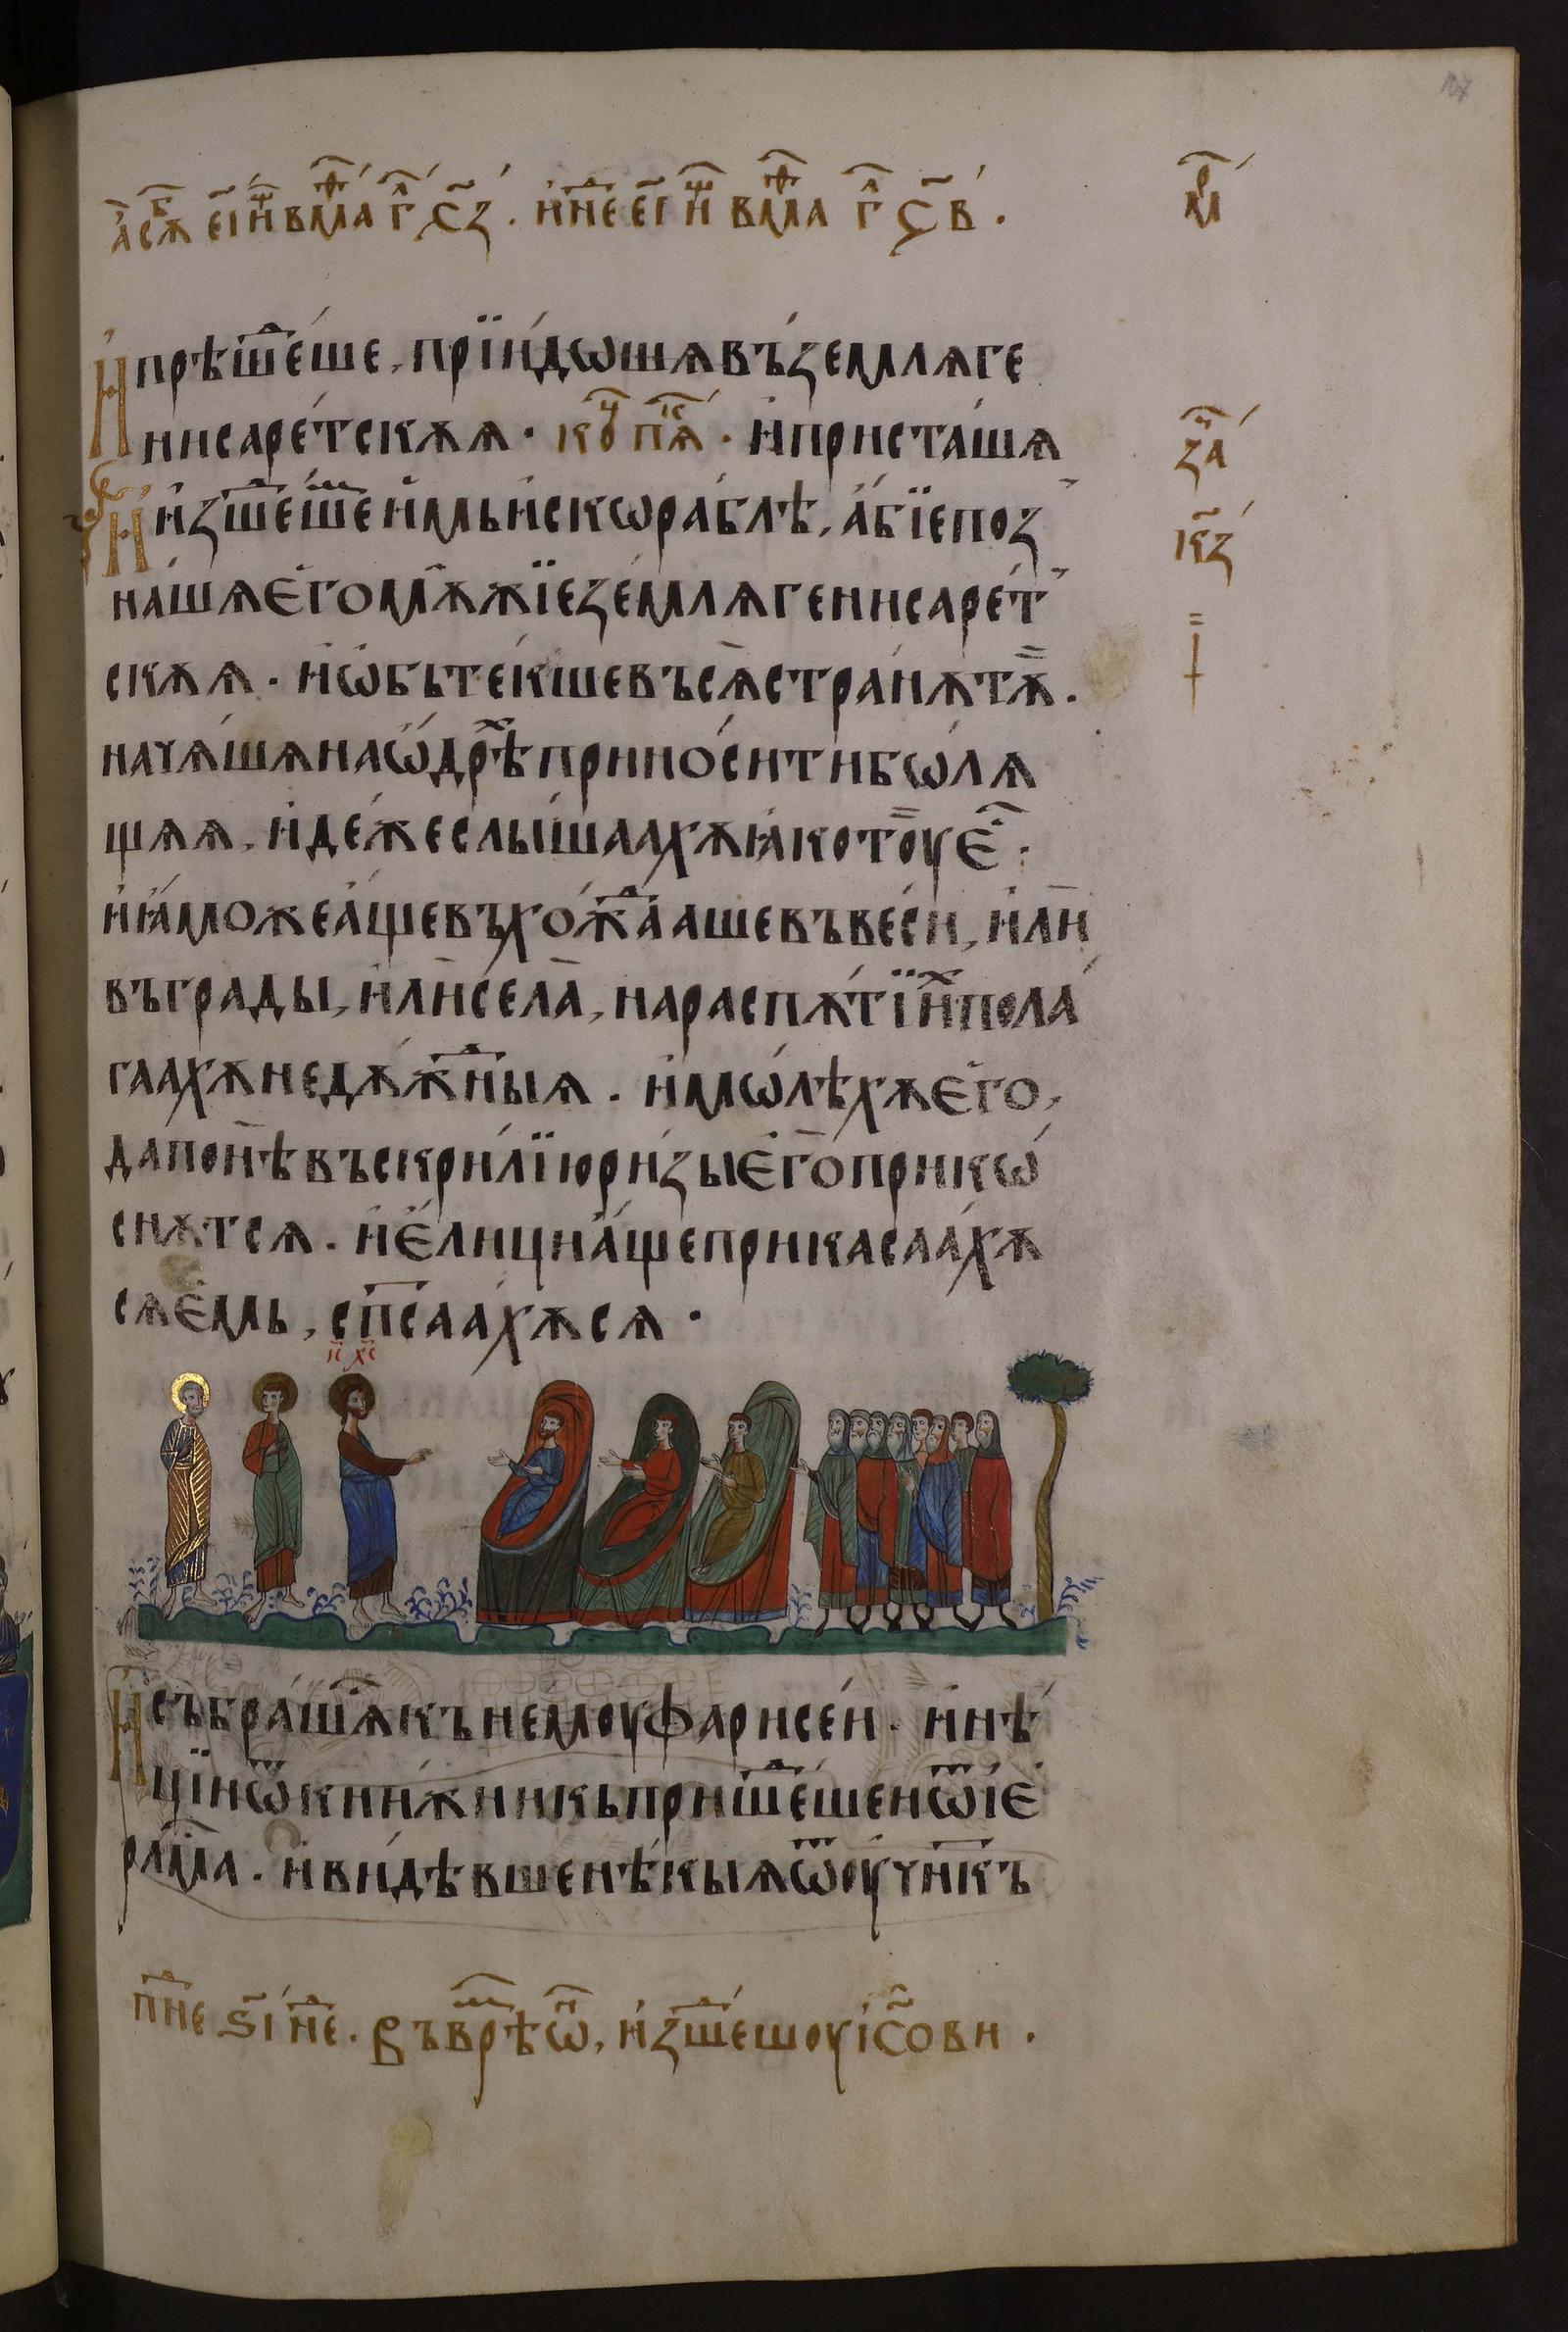 а҆ сѫ б҃ е҃і и҆ въ мⷴ҇а г҃ ѕ҃ з҃ . и҆ нⷣе е҃і и҆ въ мⷴ҇а г҃ ѕ҃ в҃ .
И҆ прѣшⷣе́ше, прїи́дѡшѧ въ́ землѧ ге
нисаре́тскѫѧ · коⷰ҇ пѧⷦ҇ · и҆ приста́шѧ
И҆ и҆зшⷣе́шⷨе и҆мь и҆с кѡра́блѣ, а҆́бїе поз
на́шѧ е҆го мѫ́жїе землѧ генисаре́т
скѫѧ · и҆ ѡ҆бьте́кше въсѧ̀ странѫ тѫ̀ .
наѵѧ́шѧ на ѡ҆дрⷯѣ прино́сити бѡ́лѧ
щѧѧ, и҆де́же слы́шаахѫ ꙗ҆ко тоу̀ є҆ⷭ҇ ·
и҆ ꙗ҆́може а҆́ще въхо́жⷣа́аше въ ве́си, и҆лѝ
въ грады, и҆лѝ се́ла̀, на распѫ́тїиⷯ пола́
гаахѫ недѫ́жⷩ҇ныѧ . и҆ мѡ́лѣхѫ є҆го̀,
да по нѣ̀ въскри́лїю ри́зы є҆го̀ прикѡ́
снѫтсѧ . и҆ е҆ли́ци а҆́ще прикаса́ахѫ
сѧ е҆мь, сп҃саахѫсѧ ·
і҃с х҃с
И҆ събра́шⷭ҇ѧ къ немоу фарисеи́ · и҆ нѣ́
цїи ѿ кни́жникь пришⷣе́шеи ѿ іе
рл҃ма . и҆ ви́дѣвше нѣ́кыѧ ѿ оу҆ѵн҃къ
пⷩ҇е ѕ҃і нⷣе . Въ врⷨѣ ѡ҆ⷩ҇, и҆зшⷣе́шоу і҆с҃ови .
м҃
за҃
к҃з